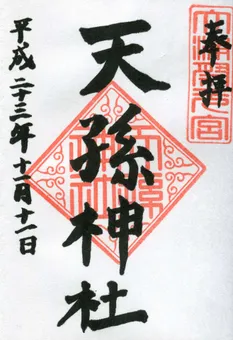 奉拝
天孫神社
平成二十三年十一月十一日